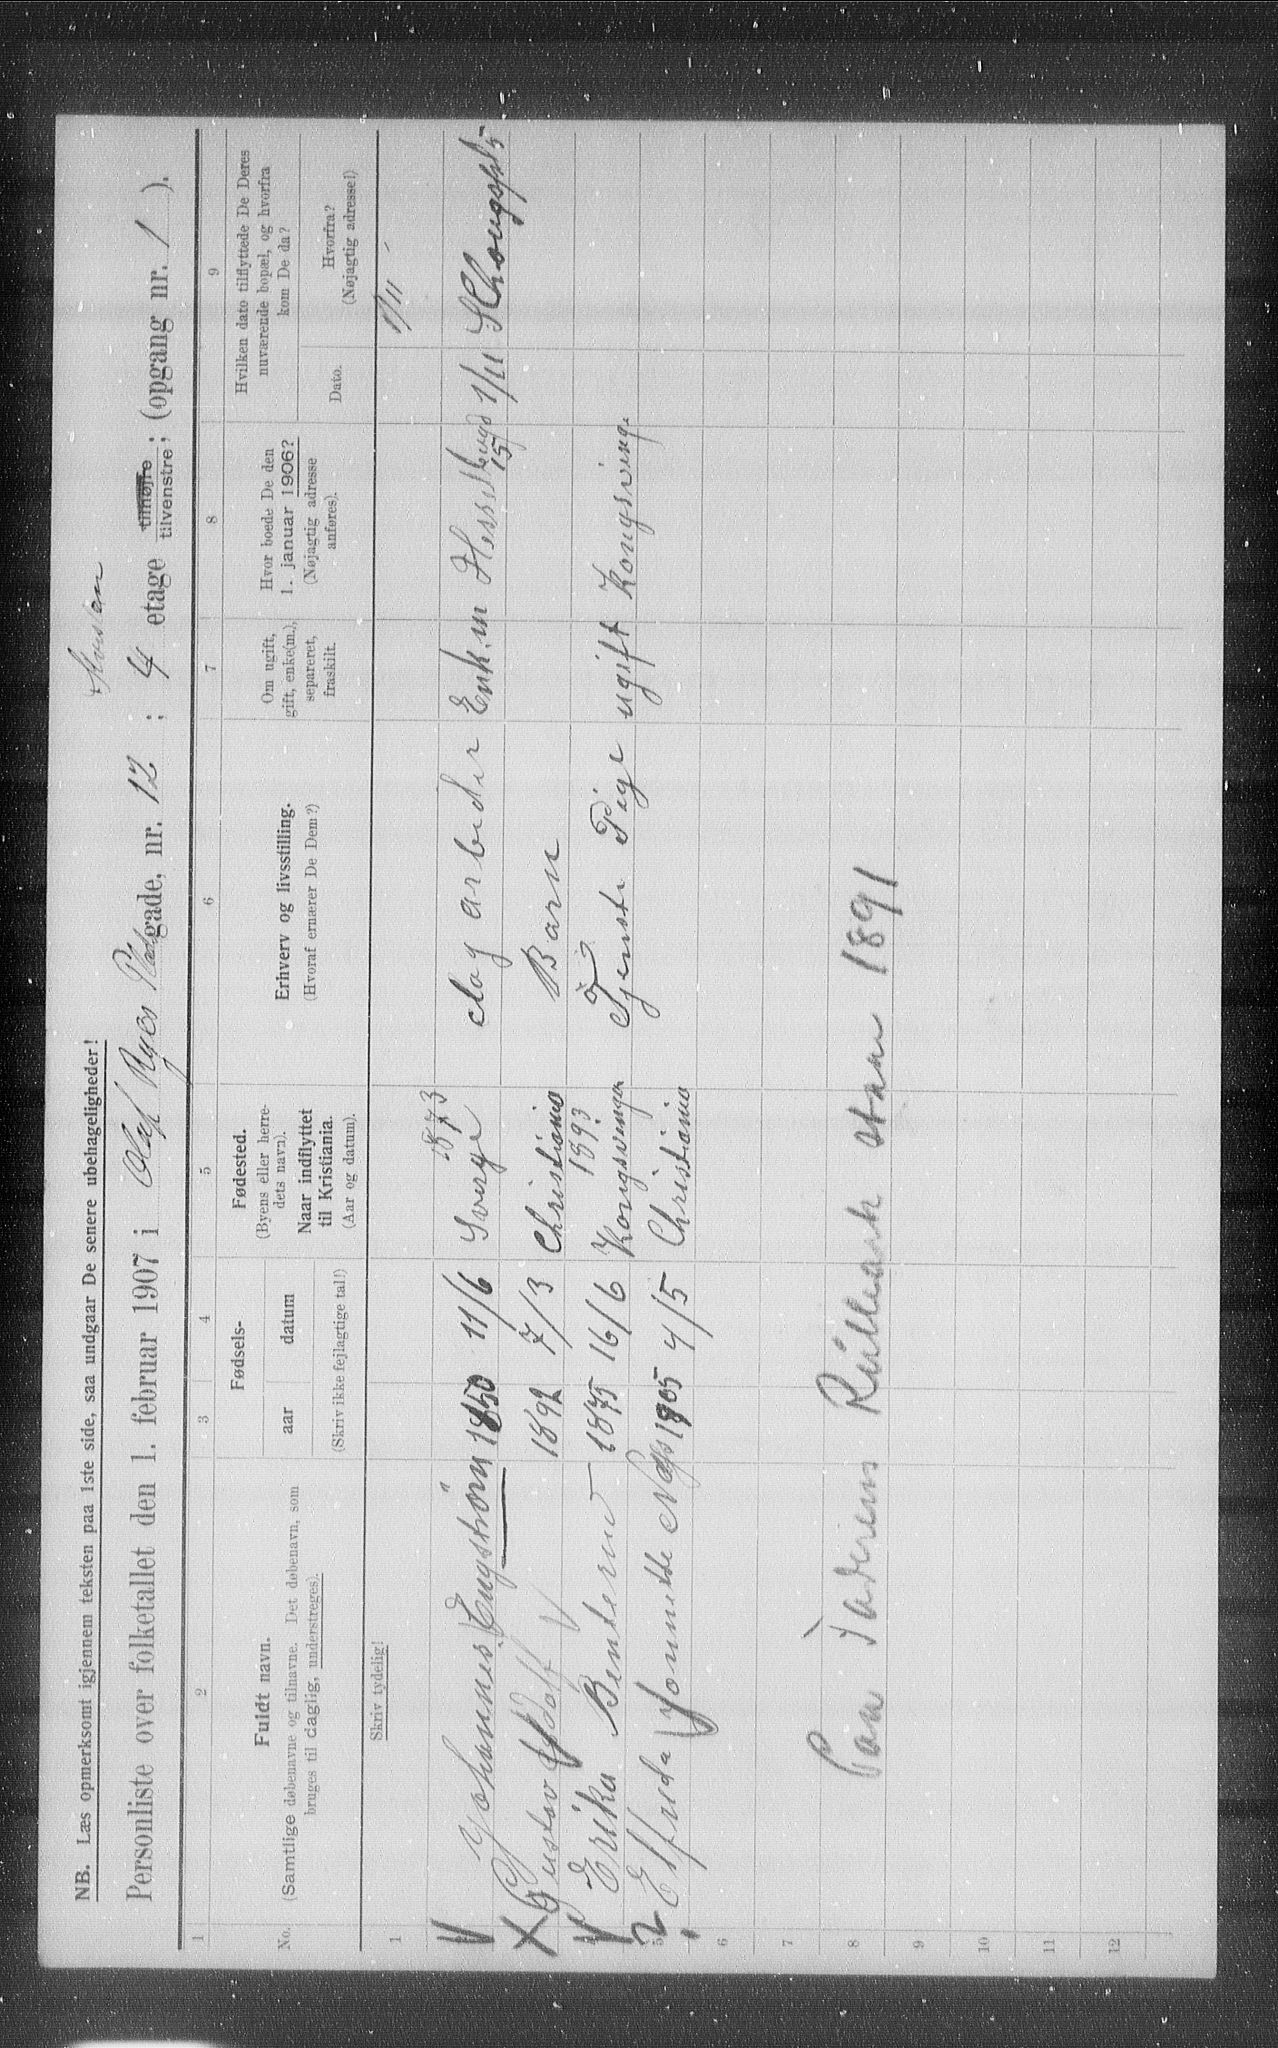 NB. Læs opmerksomt igjennem teksten paa 1ste side, saa undgaar De senere ubehageligheder!
Personliste over folketallet den 1. februar 1907 i Olaf Ryes Plads gade, nr. 12 ; 4 etage tilhøjre tilvenstre; (opgang nr. 1 ).
1 2 3 4 5 6 7 8 9
No.
Fuldt navn.
(Samtlige døbenavne og tilnavne. Det døbenavn, som
bruges til daglig, understreges).
Fødsels-
aar datum
(Skriv ikke fejlagtige tal!)
Fødested.
(Byens eller herre-
dets navn).
Naar indflyttet
til Kristiania.
(Aar og datum).
Erhverv og livsstilling.
(Hvoraf ernærer De Dem?)
Om ugift,
gift, enke(m.),
separeret,
fraskilt.
Hvor boede De den
1. januar 1906?
(Nøjagtig adresse
anføres).
Hvilken dato tilflyttede De Deres
nuværende bopæl, og hvorfra
kom De da?
Dato.
Hvorfra?
(Nøjagtig adresse!)
Skriv tydelig!
1 1/11
Johannes Engström 1850 11/6 Sverge 1873 dag arbeider Enk.m 15 1/11
Gustav Adolf 1892 7/3 Christiania Barn
4 Erika 1875 16/6 Kongsvinger 1893 Tjeneste Pige ugift Kongsvinge
5 Elfrida Jonnette 1905 4/5 Christiania
6
7
8 1891
9
10
11
12